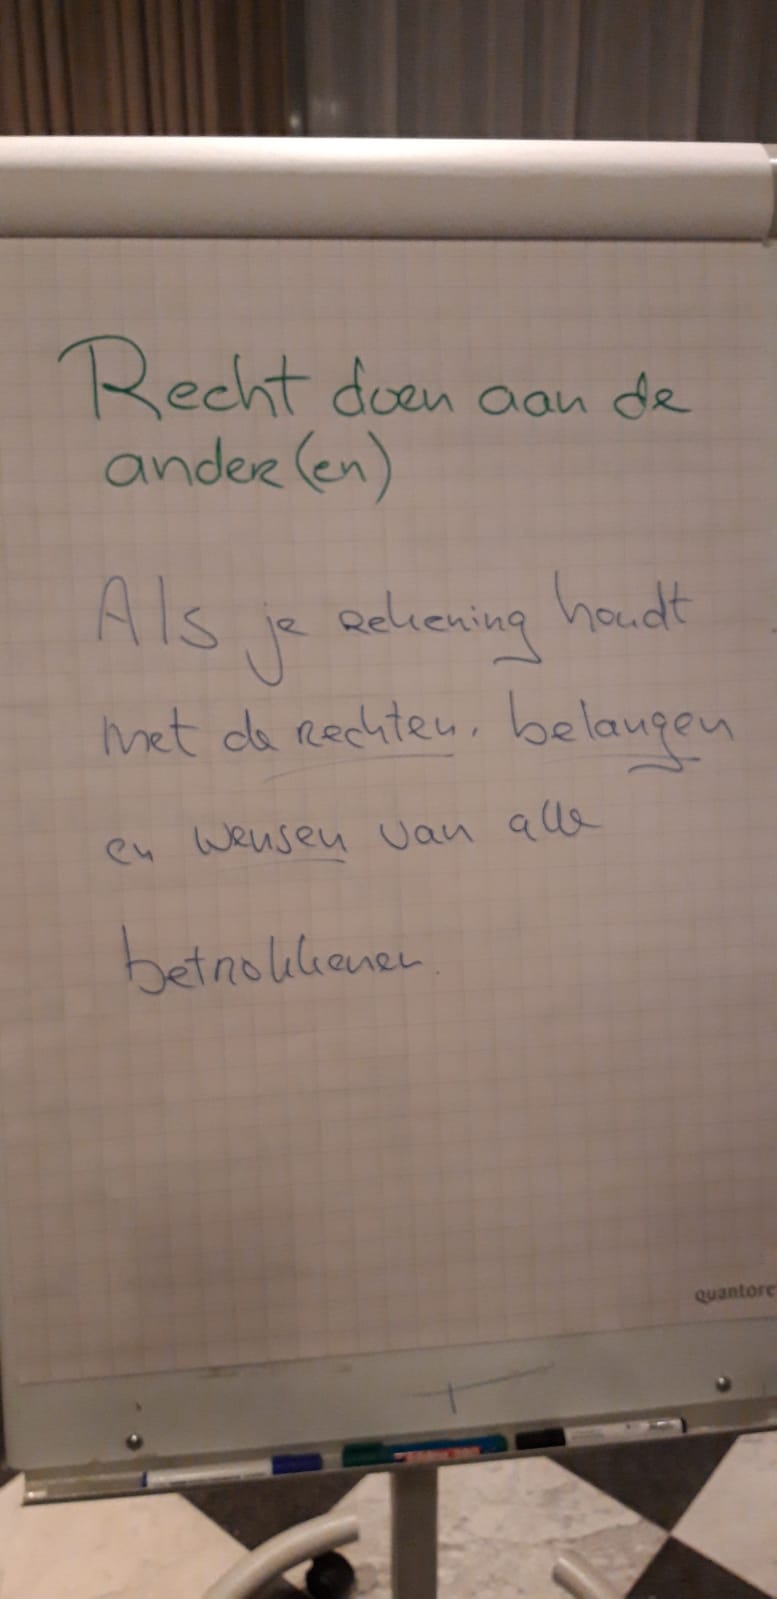 Recht doen aan de
ander(en)
Als je rekening houdt
met de rechten, belangen
en wensen van alle
betrokkenen.
quantore